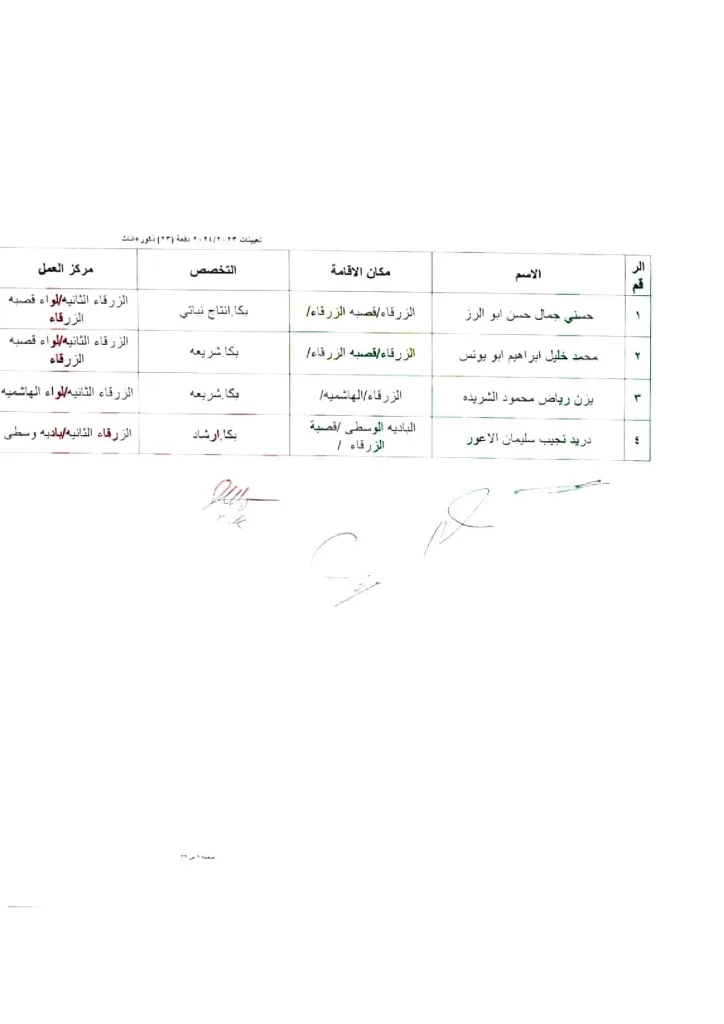 تعيينات ٢٠٢٤/٢٠٢٣ دفعة (٢٣) ذكور واناث
الرقم الاسم مكان الاقامة التخصص مركز العمل
١ حسني جمال حسن ابو الرز الزرقاء/قصبه الزرقاء/ بكا.انتاج نباتي الزرقاء الثانيه/لواء قصبه الزرقاء
٢ محمد خليل ابراهيم ابو يونس الزرقاء/قصبه الزرقاء/ بكا.شريعه الزرقاء الثانيه/لواء قصبه الزرقاء
٣ يزن رياض محمود الشريده الزرقاء/الهاشميه/ بكا.شريعه الزرقاء الثانيه/لواء الهاشميه
٤ دريد نجيب سليمان الاعور الباديه الوسطى /قصبة الزرقاء / بكا.ارشاد الزرقاء الثانيه/باديه وسطى